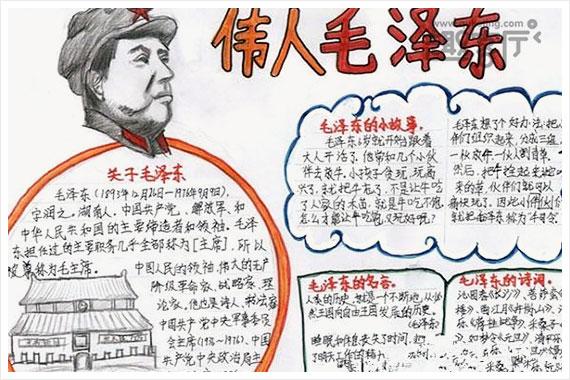 伟人毛泽东
关于毛泽东
毛泽东(1893年12月26日-1976年9月9日),
字润之,湖南人,中国共产党、解放军、和
中华人民共和国的主要缔造者和领袖。毛泽
东担任过的主要职务几乎全部称为【主席】,所以
称为毛主席。
中国人民的领袖,伟大的无产
阶级革命家、战略家、理
论家。他也是诗人,书法家
中国共产党中央军事委员
会主席(1936~1976),中国
共产党中央政治局主
毛泽东的小故事。
毛泽东6岁就开始跟着
大人干活了。他常和几个小伙
伴去放牛。小孩子贪玩,玩高
兴了,就把牛忘了,不是让牛吃
了人家的禾苗,就是牛吃不饱,
怎么才能让牛吃饱,又玩好呢?
毛泽东想了个好办法:把小
们组织起来,分成三
一伙放牛 一伙割青草,
然后,把
来的草,伙伴们就可以
痛快玩了。因此小伙伴们
毛泽东的名言。
人类的历史,就是一个不断地从必
然王国向自由王国发展的历史。
(毛泽东)
毛泽东的诗词。
沁园春《长沙》、菩萨蛮《
楼》、西江月《井冈山》、